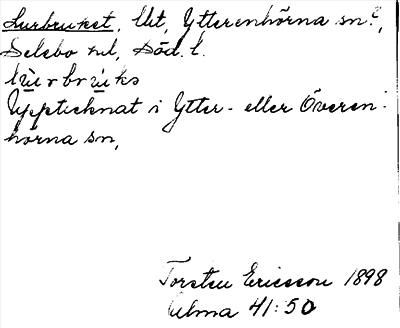 Lurbruket, Ult, Ytterenhörna sn?,
Selebo hd, Söd. l.
lùrbrùks
Upptecknat i Ytter- eller Överen-
hörna sn,
Torsten Ericsson 1898
Ulma 41:50